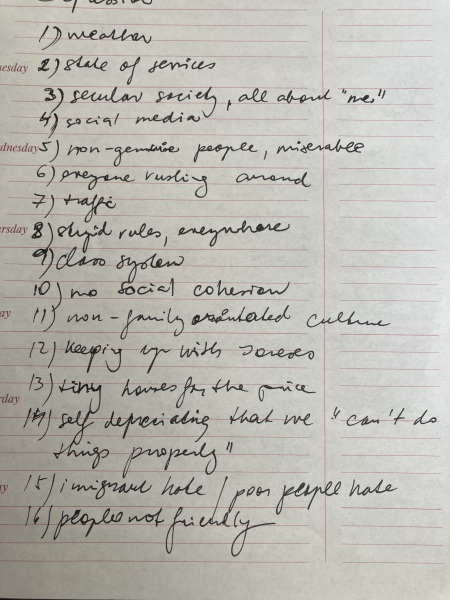 1) weather
uesday 2) state of services
3) secular society, all about "me"
4) social media
dnesday 5) non-genuine people, miserable
6) everyone rushing around
7) traffic
ursday 8) stupid rules, everywhere
9) class system
10) no social cohesion
ay 11) non-family orientated culture
12) keeping up with Joneses
13) tiny houses for the price
rday
14) self depreciating that we "can't do
things properly"
y 15) imigrant hate / poor people hate
16) people not friendly